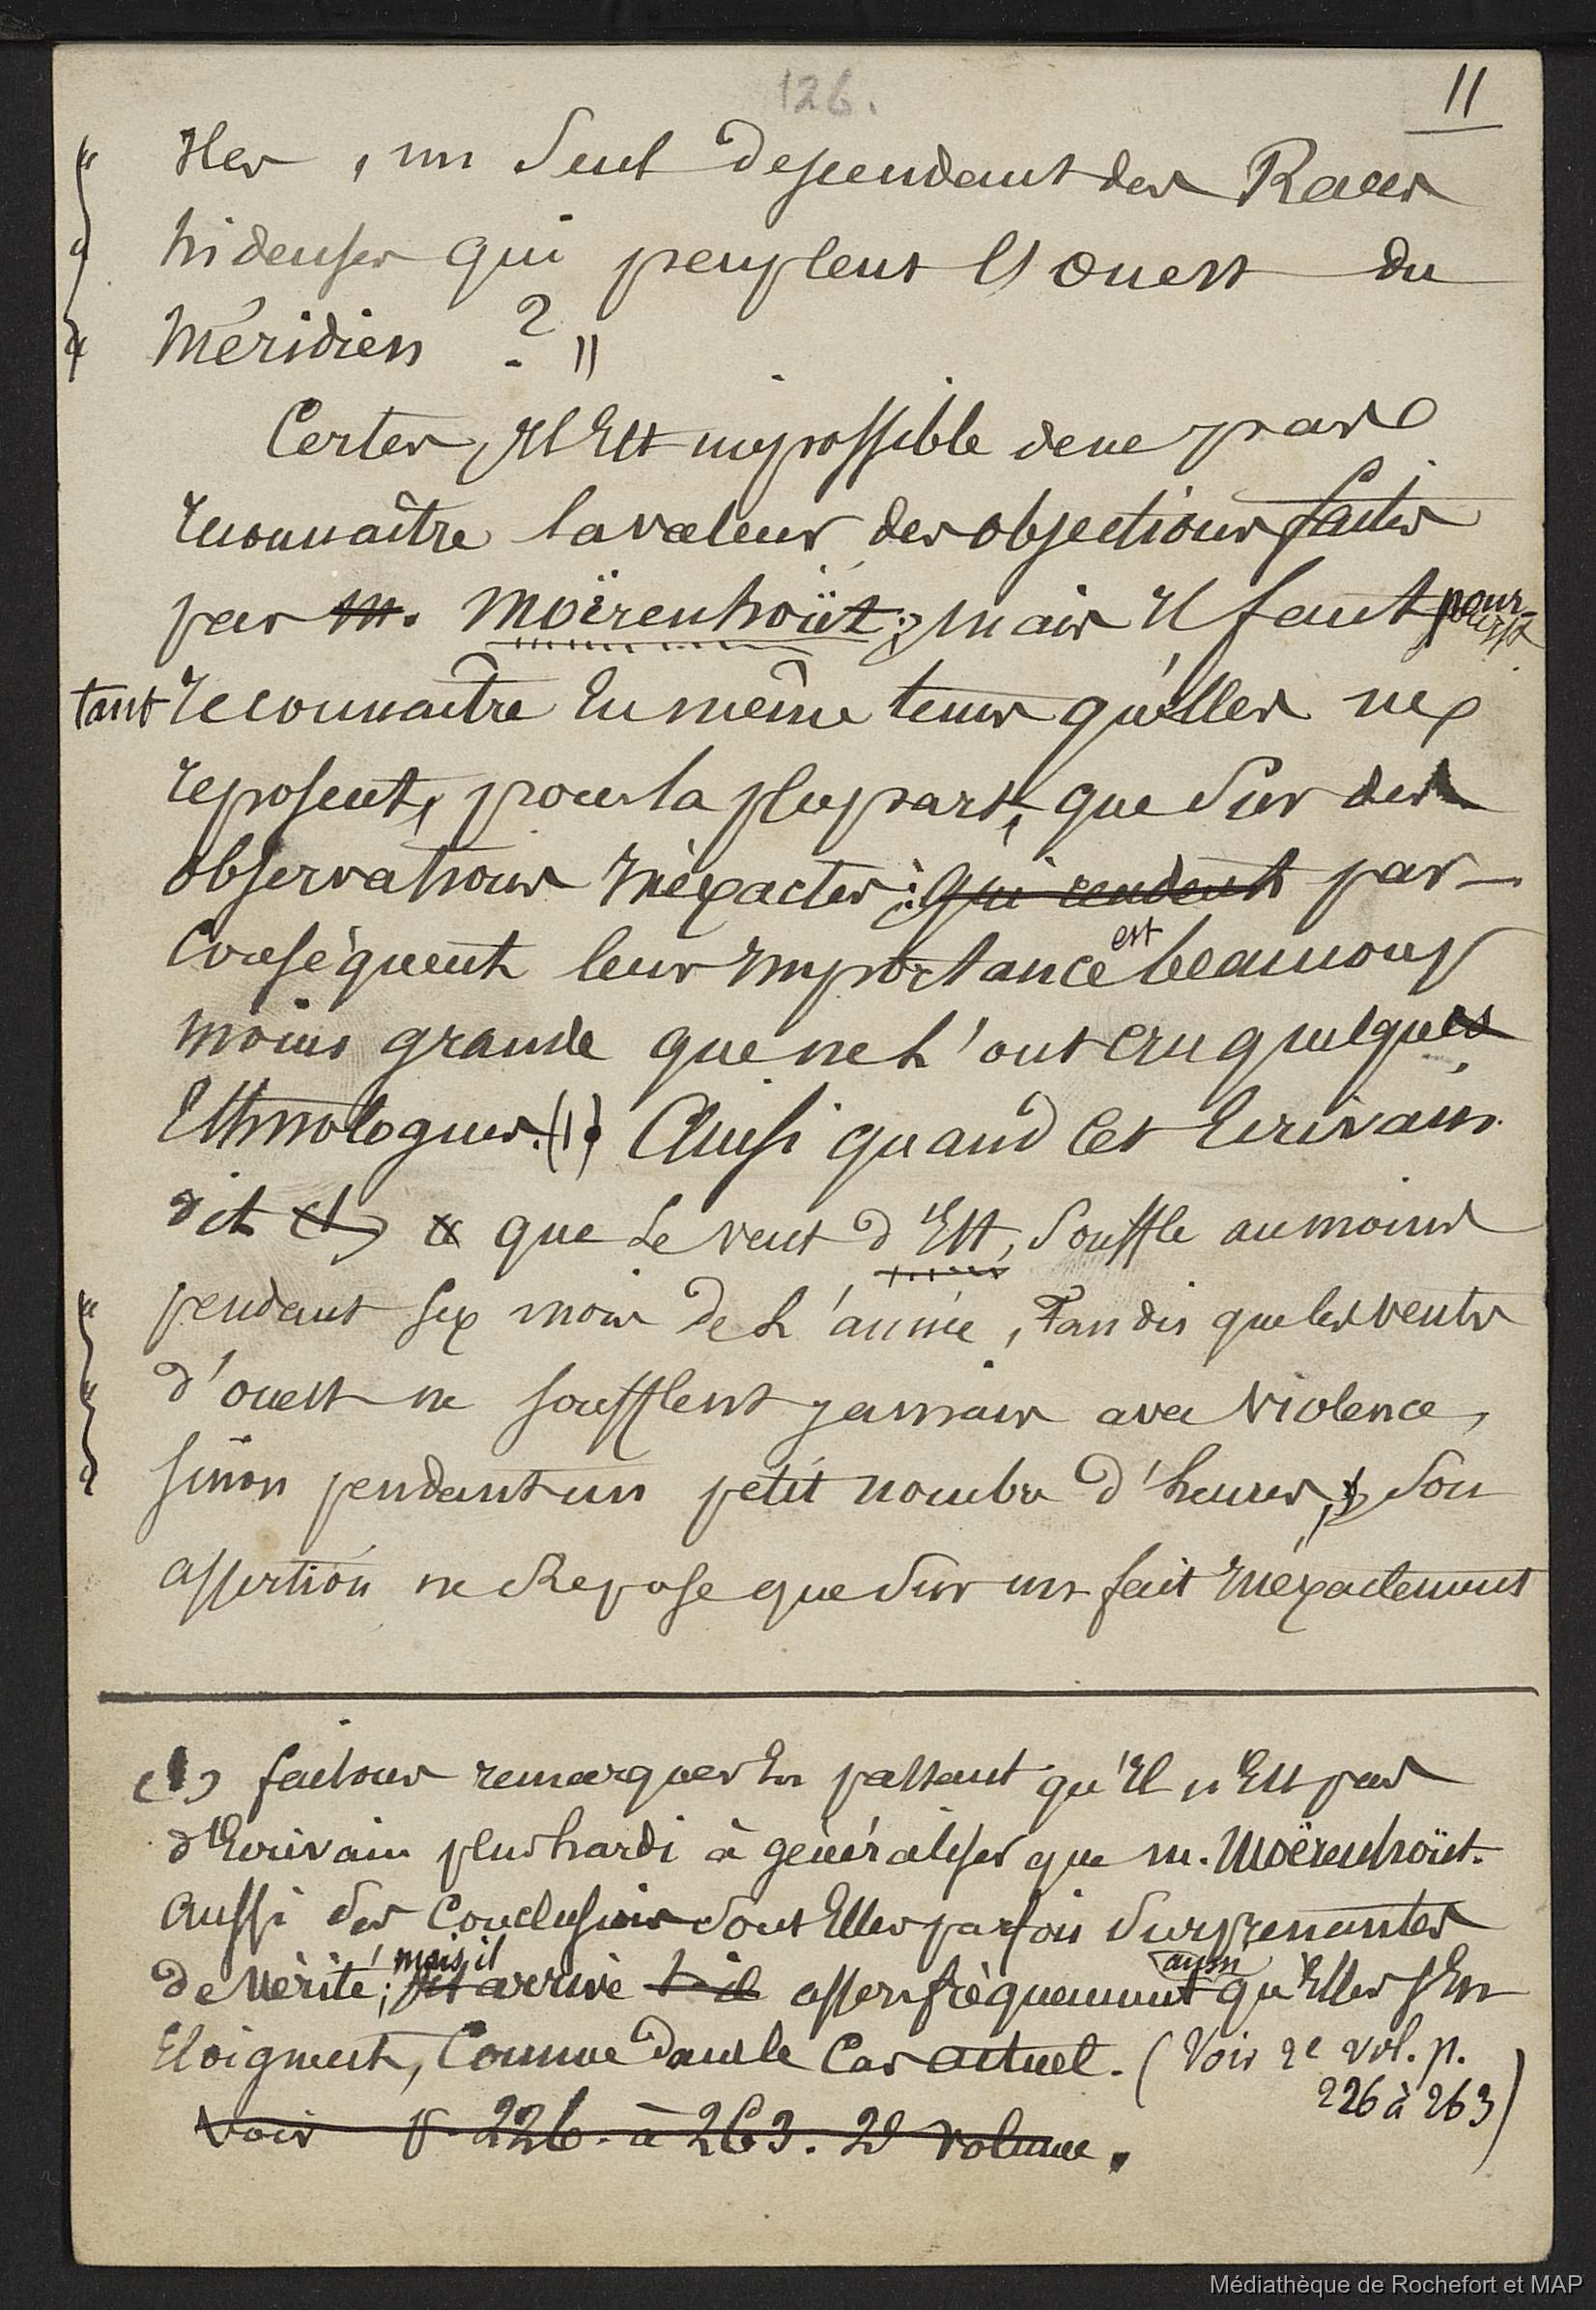 126.
11
Iles, un seul descendant des Races
hideuses qui peuplent l'ouest du
Méridien ? "
Certes, Il Est impossible de ne pas
reconnaître la valeur des objections faites
par M. Moërenhoüt; mais Il faut pour-
tant reconnaître En même tems qu'elles ne
reposent, pour la plupart, que sur des
observations Inéxactes; qui rendent par
Conséquent leur Importance est beaucoup
moins grande que ne l'ont cru quelques
Ethnologues. (1) Ainsi quand Cet Ecrivain
dit que le vent d'Est, souffle au moins
pendant six mois de l'année, Tandis que les vents
d'ouest ne soufflent jamais avec violence,
sinon pendant un petit nombre d'heures, son
assertion ne Repose que sur un fait Inéxactement
(1) faisons remarquer En passant qu'Il n'Est pas
d'Ecrivain plus hardi à généraliser que M. Moërenhoüt.
Aussi ses Conclusions sont Elles parfois surprenantes
de vérité; mais il arrive assez fréquemment aussi qu'Elles s'En
Eloignent, Comme dans le Cas actuel. (Voir 2e vol. p.
226 à 263)
Voir p. 226. à 263. 2e volume.
Médiathèque de Rochefort et MAP